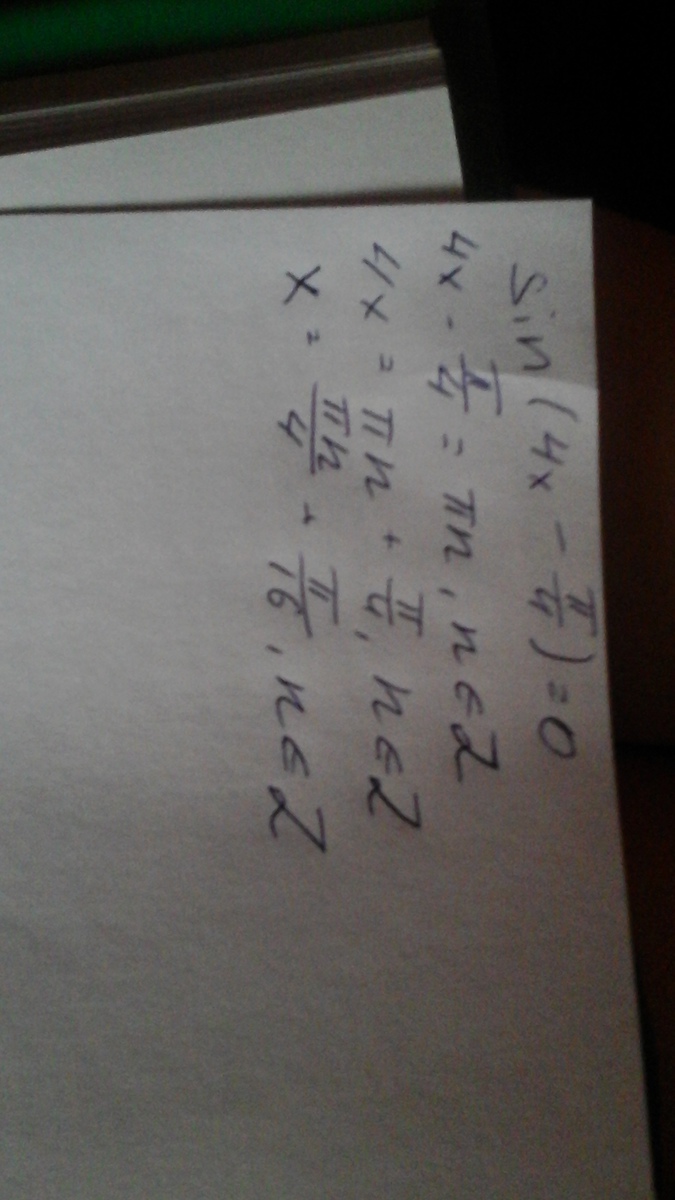 Sin (4x - π/4) = 0
4x - π/4 = πn, n ∈ Z
4x = πn + π/4, n ∈ Z
x = πn/4 + π/16, n ∈ Z